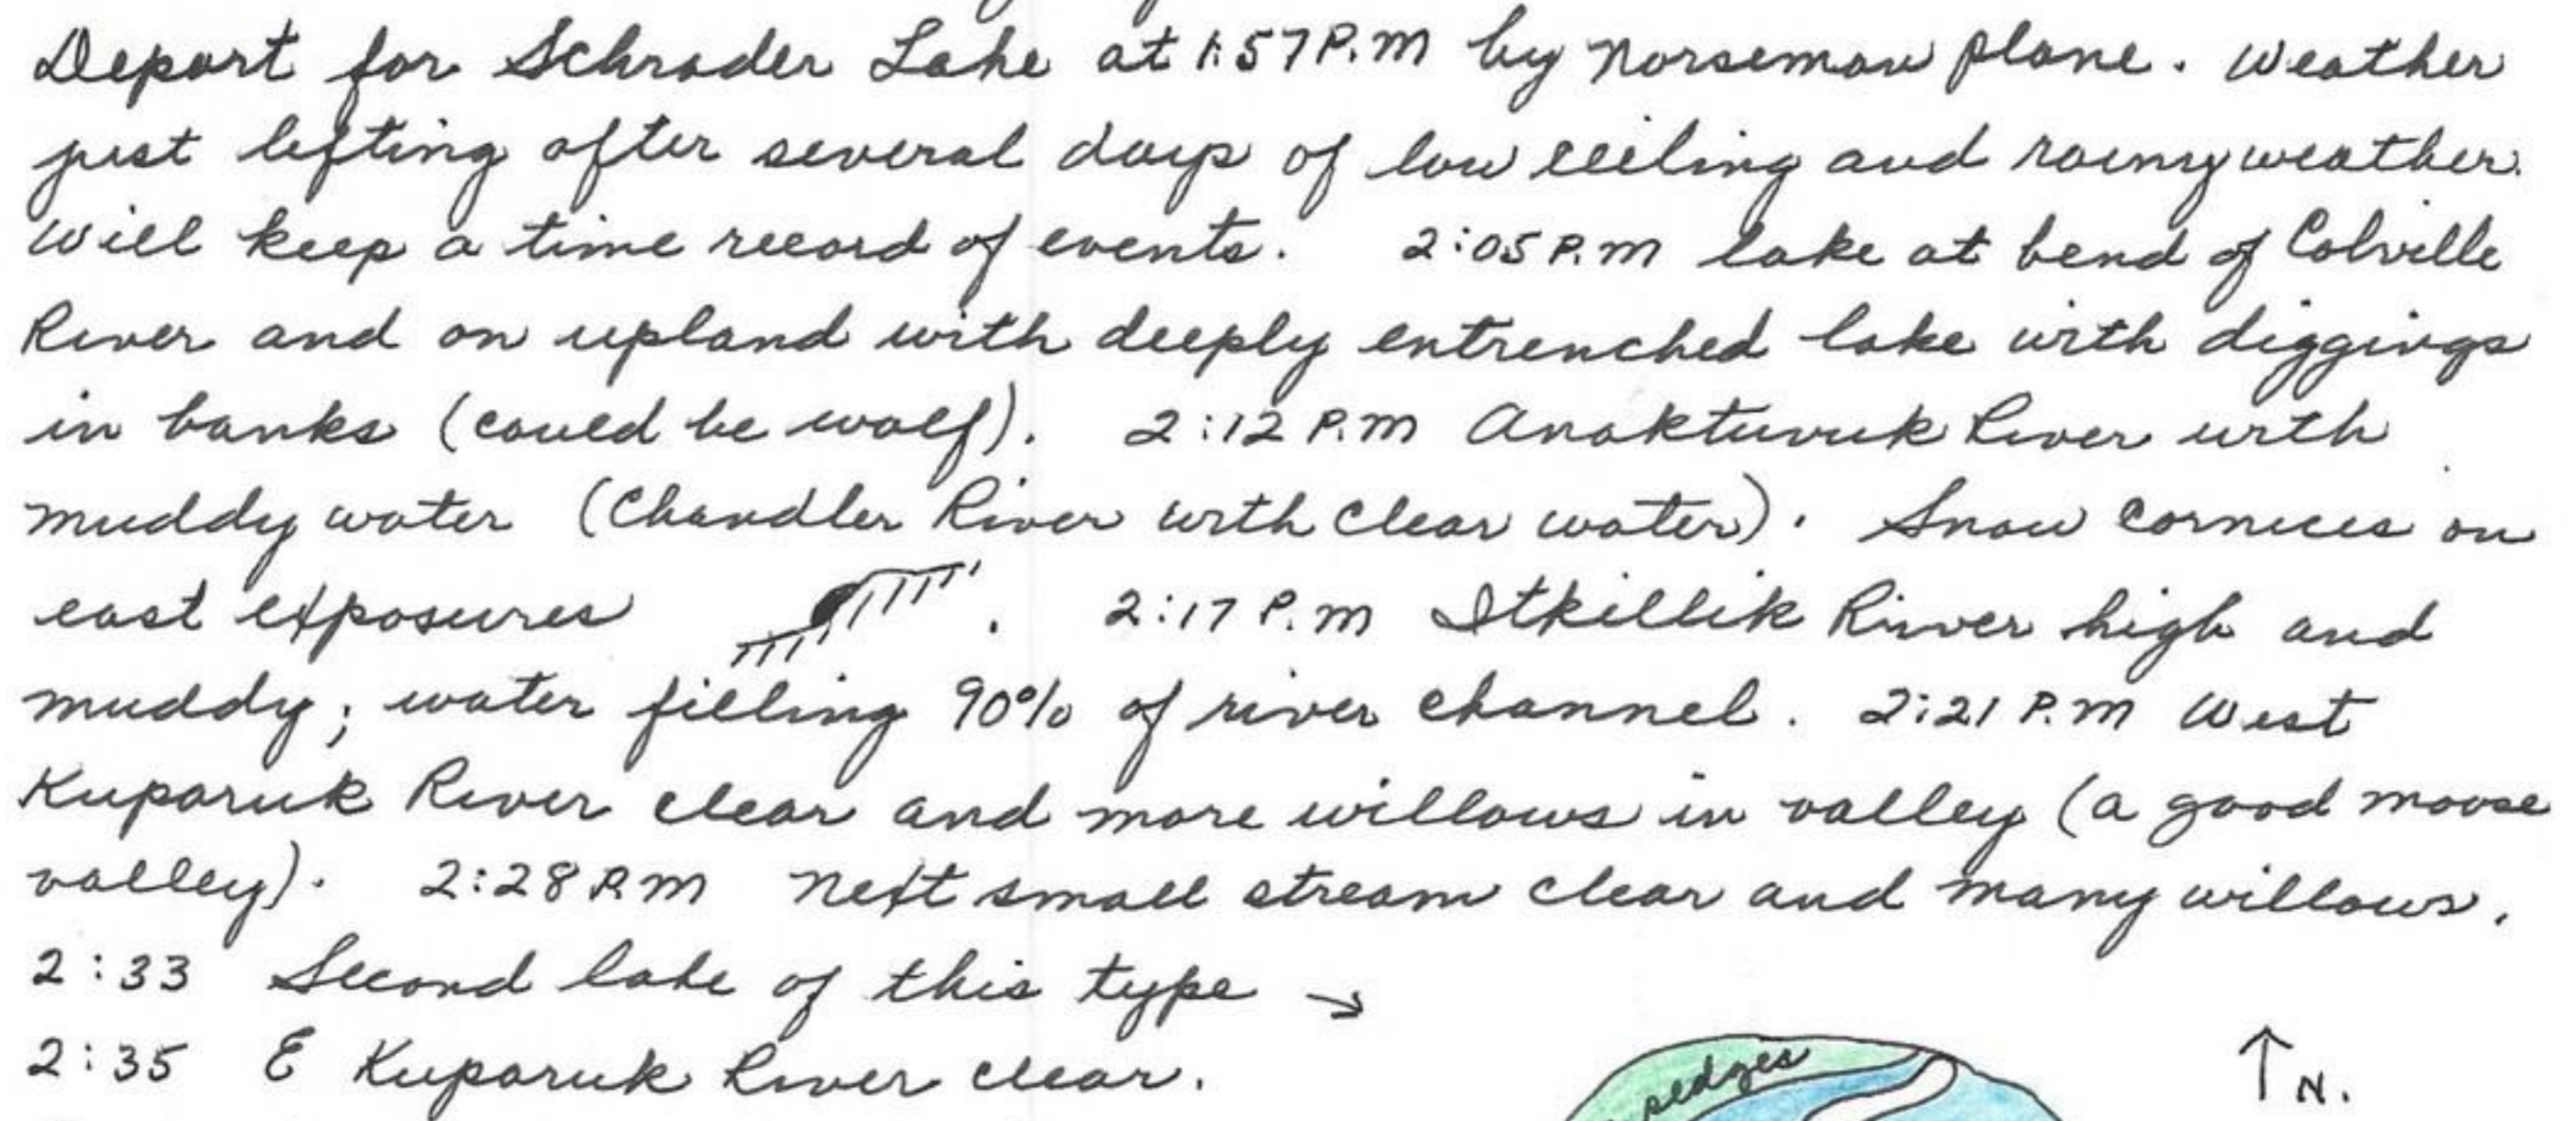 Depart for Schrader Lake at 1:57 P.M by Norseman plane. Weather
just lifting after several days of low ceiling and rainy weather.
Will keep a time record of events. 2:05 P.M lake at bend of Colville
River and on upland with deeply entrenched lake with diggings
in banks (could be wolf). 2:12 P.M Anaktuvuk River with
muddy water (Chandler River with clear water). Snow cornices on
east exposures . 2:17 P.M Itkillik River high and
muddy; water filling 90% of river channel. 2:21 P.M West
Kuparuk River clear and more willows in valley (a good moose
valley). 2:28 P.M Next small stream clear and many willows.
2:33 Second lake of this type →
2:35 E Kuparuk River clear.
sedges
↑ N.